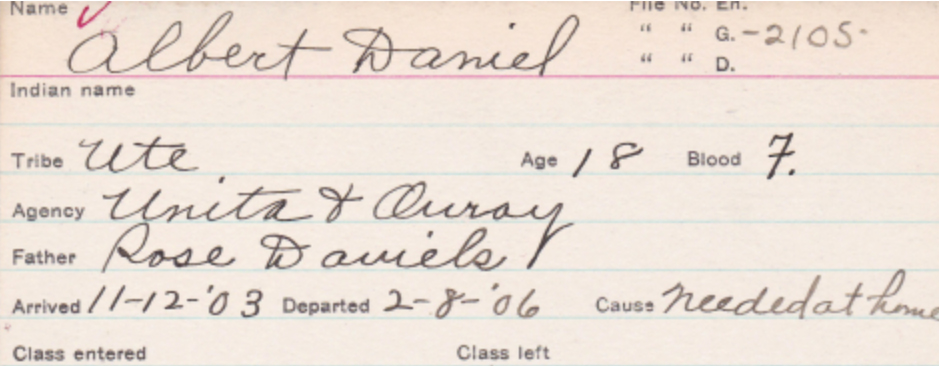 Name File No. En.
Albert Daniel " " G. -2105-
" " D.
Indian name
Tribe Ute Age 18 Blood F.
Agency Unita & Ouray
Father Rose Daniels
Arrived 11-12-'03 Departed 2-8-'06 Cause Needed at home
Class entered Class left